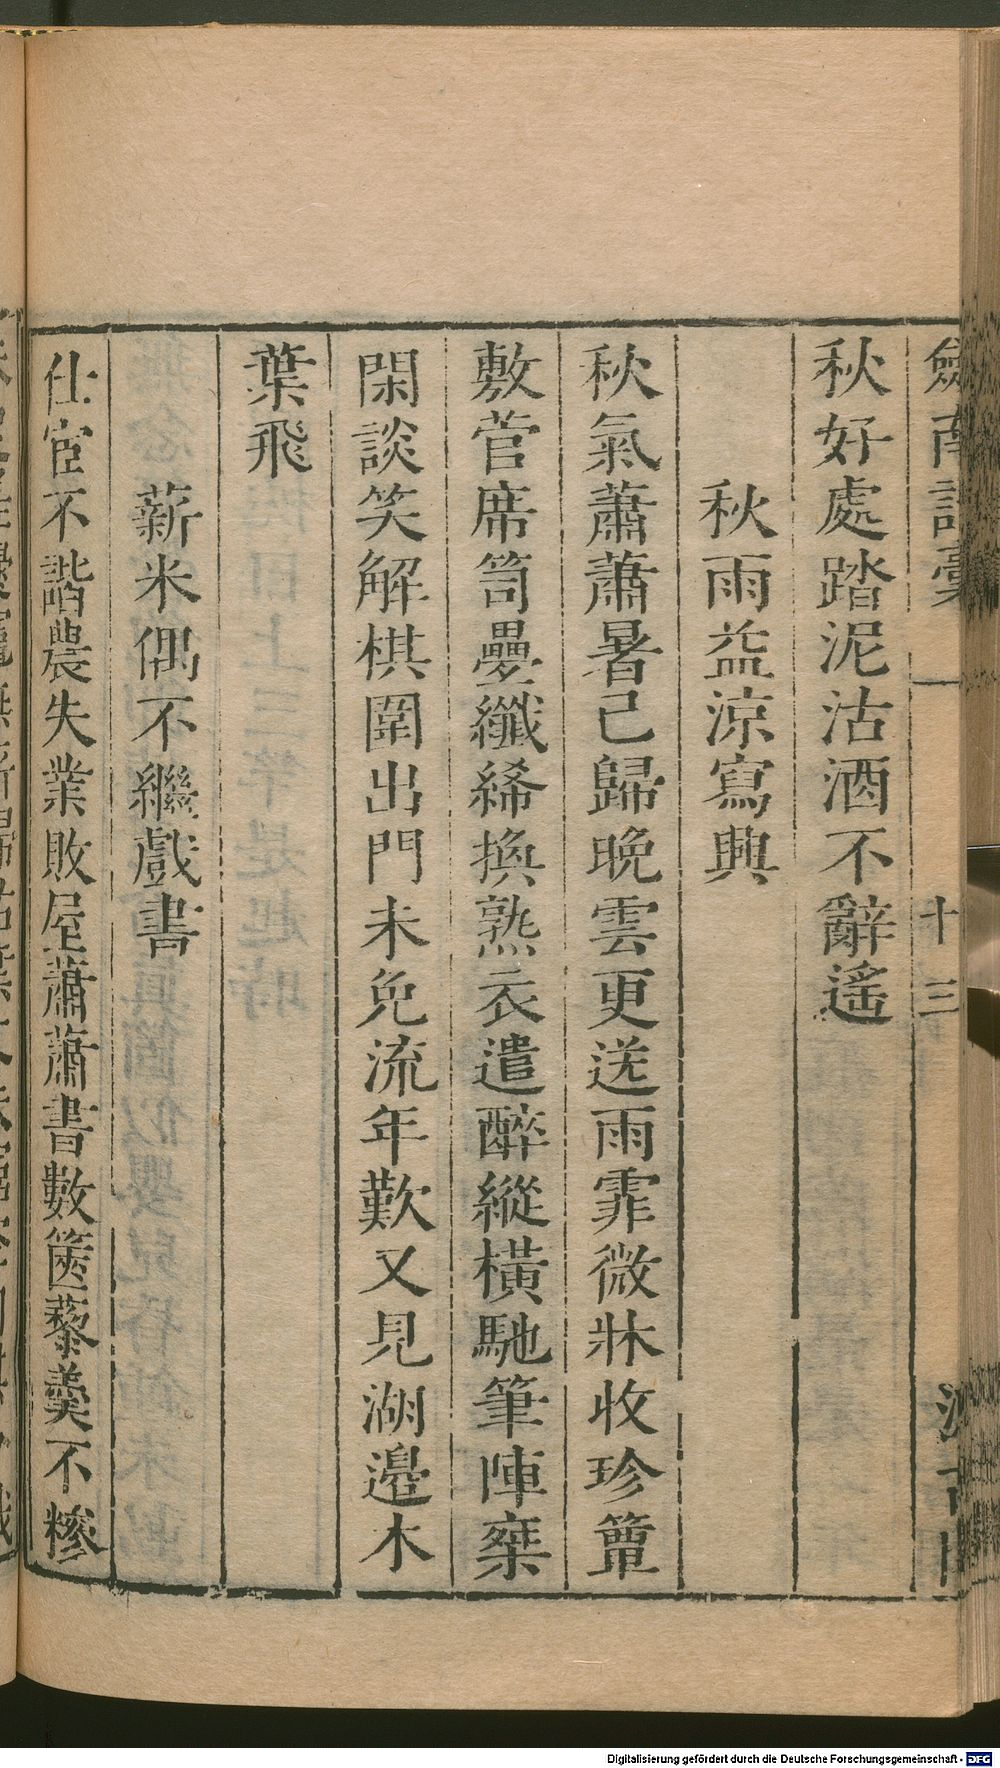 劍南詩稾 一 十三
秋好處踏泥沽酒不辭遙
秋雨益涼寫興
秋氣蕭蕭暑已歸晚雲更送雨霏微牀收珍簟
敷菅席笥疊纖絺換熟衣遣醉縱橫馳筆陣棊
閑談笑解棋圍出門未免流年歎又見湖邉木
葉飛
薪米偶不繼戲書
仕宦不諧農失業敗屋蕭蕭書數篋藜羹不糝
Digitalisierung gefördert durch die Deutsche Forschungsgemeinschaft - DFG